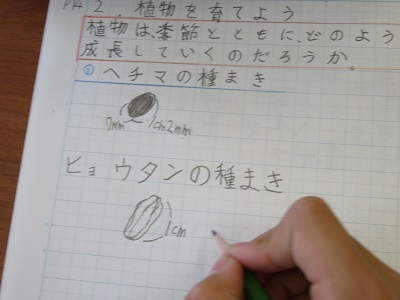 P14 2. 植物を育てよう
植物は、季節とともに、どのよう
成長していくのだろうか。
① ヘチマの種まき
7mm 1cm2mm
ヒョウタンの種まき
1cm